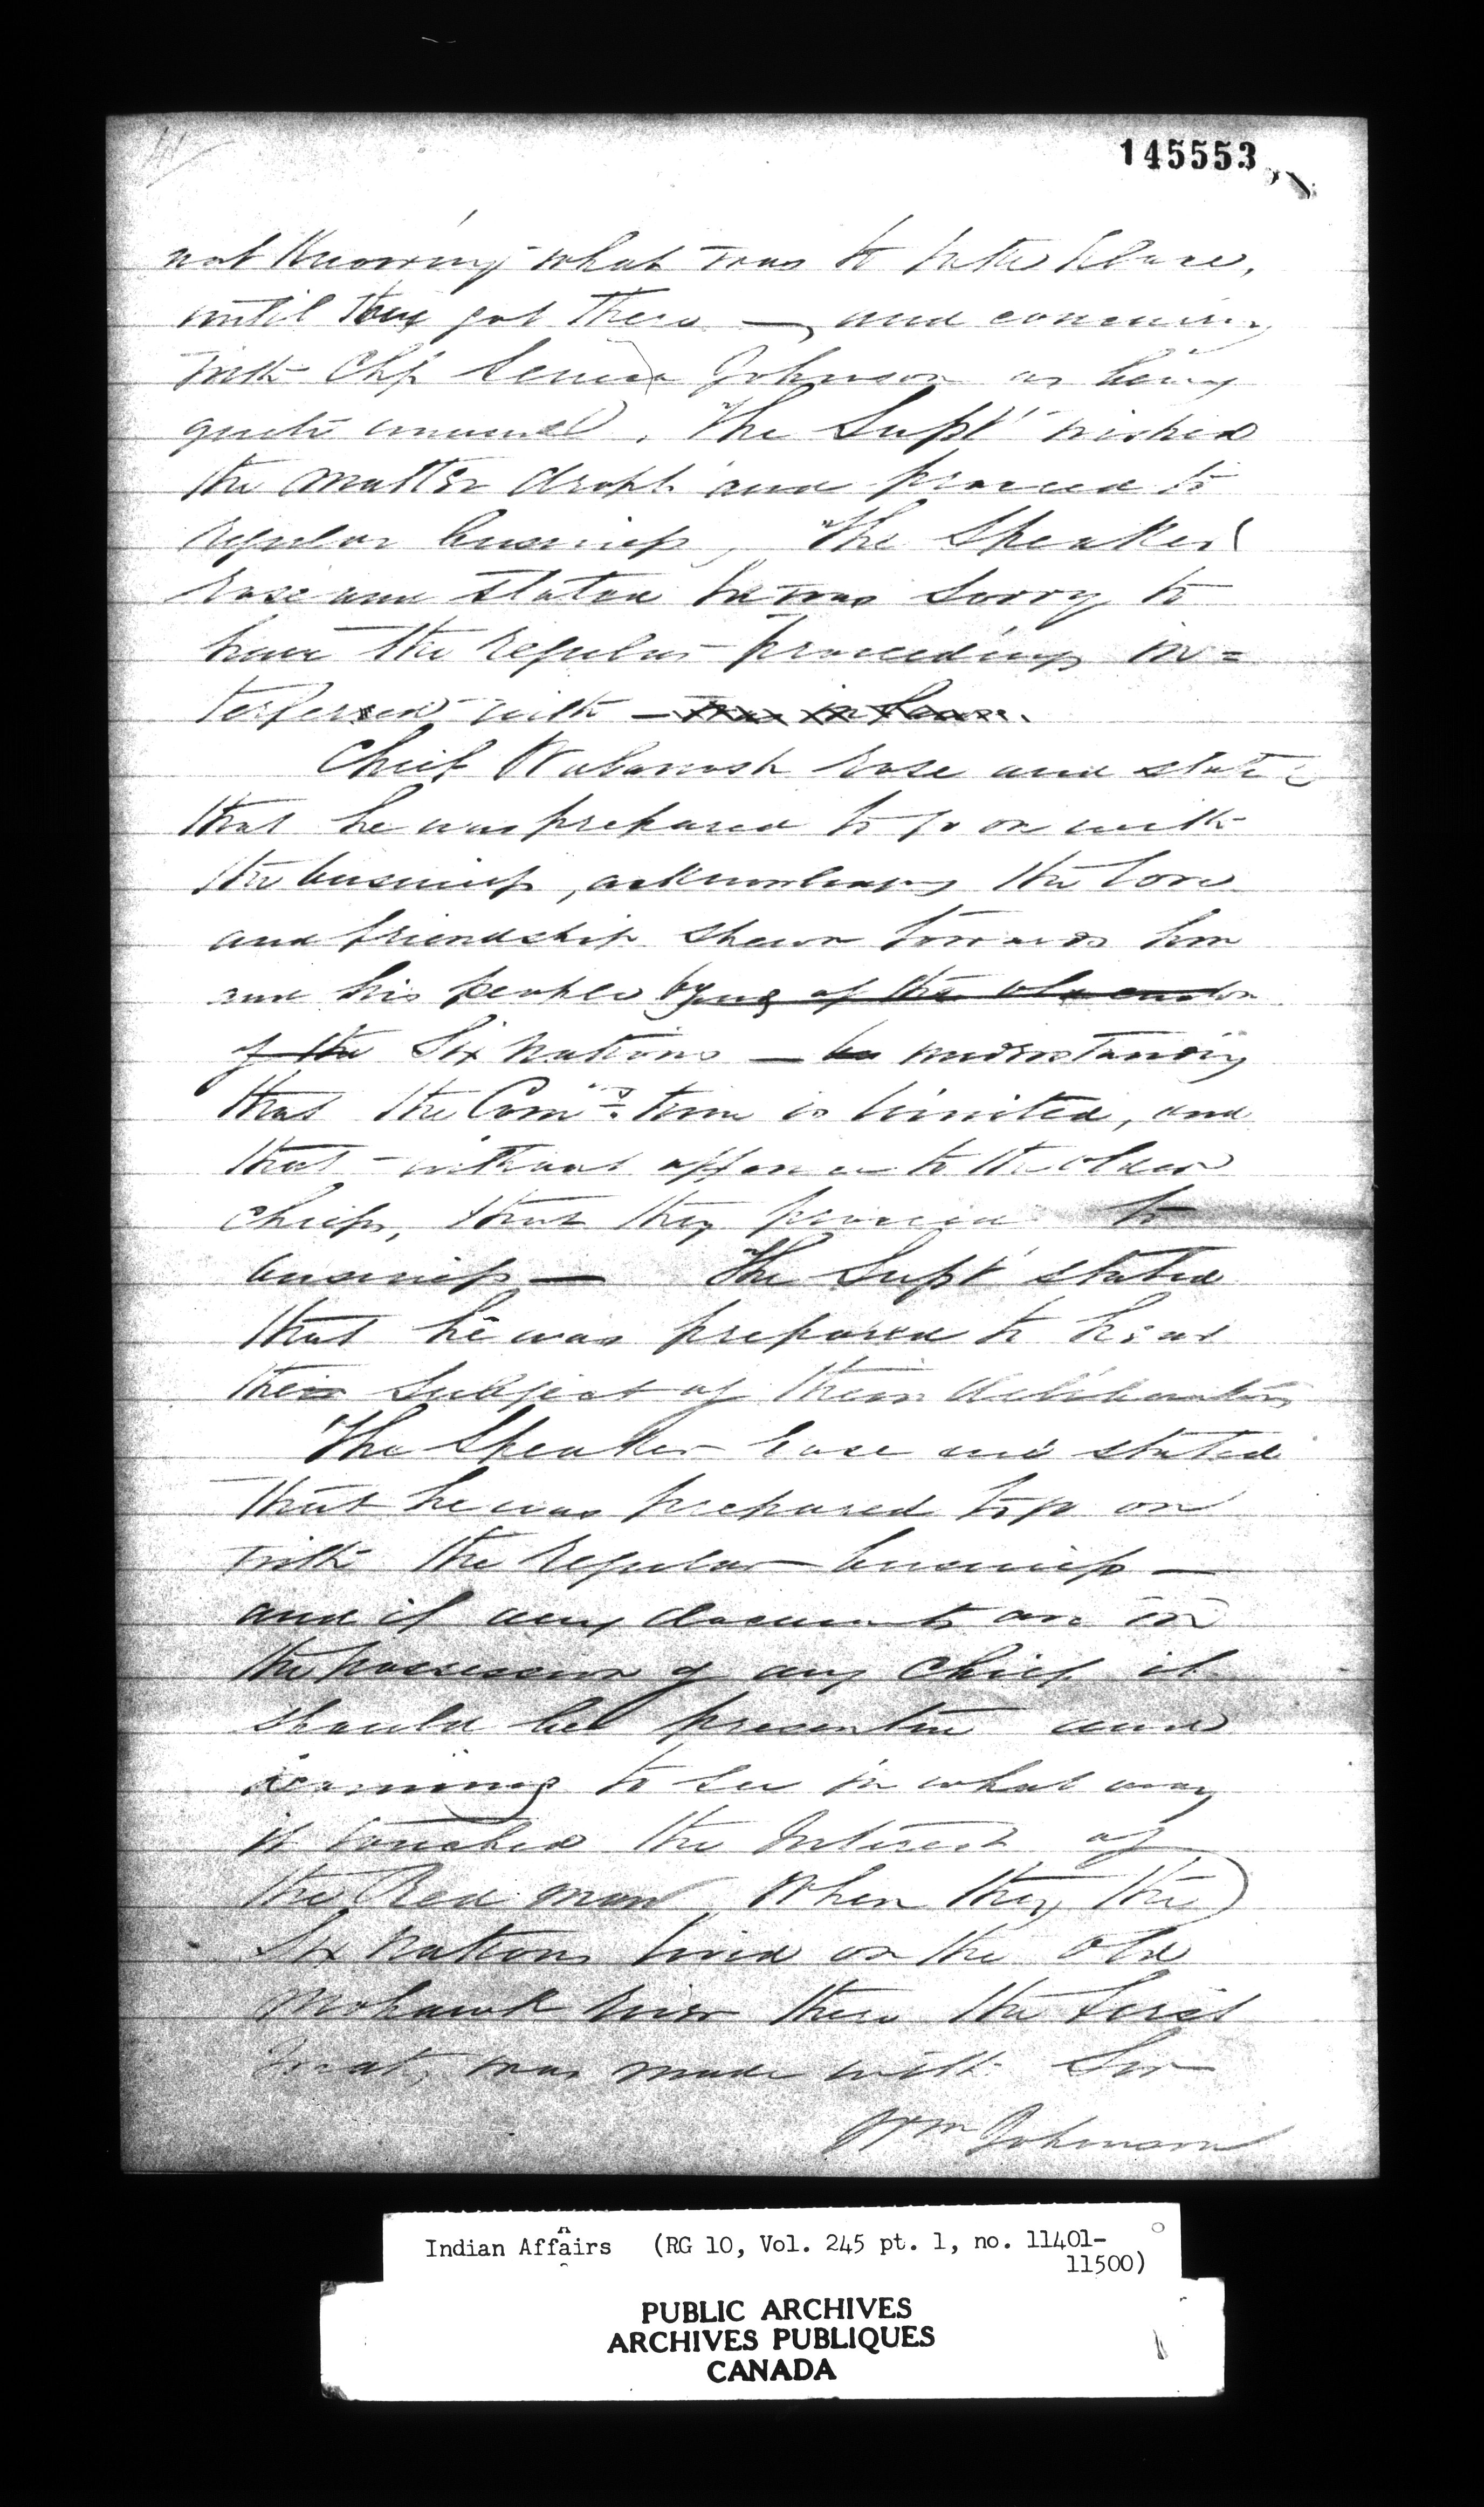 145553
not knowing what was to take place,
until they got there — and concurring
with Chf Johnson as being
quite unusual. The Supt wished
the matter dropt and proceed to
regular business, The Speaker
rose and stated he was sorry to
have the regular proceedings in=
terfered with —
Chief Wabanosh rose and stated
that he was prepared to go on with
the business, acknowledging the love
and friendship shewn towards him
and his people by of the
of the Six Nations — understanding
that the Comrs. time is limited, and
that - without offence to the older
chiefs, that they proceed to
business — The Supt stated
that he was prepared to hear
the subject of their deliberations
The Speaker rose and stated
that he was prepared to go on
with the regular business —
and if any documents are in
the possession of any Chief it
should be presented and
to see in what way
it touched the Interest of
the Red man When they the
Six Nations lived on the Old
Mohawk river there the first
treaty was made with Sir
Wm Johnson
Indian Affairs (RG 10, Vol. 245 pt. 1, no. 11401-
11500)
PUBLIC ARCHIVES
ARCHIVES PUBLIQUES
CANADA